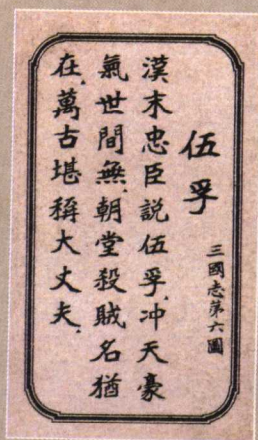 三國志第六圖
伍孚
漢末忠臣説伍孚沖天豪
氣世間無朝堂殺賊名猶
在萬古堪稱大丈夫